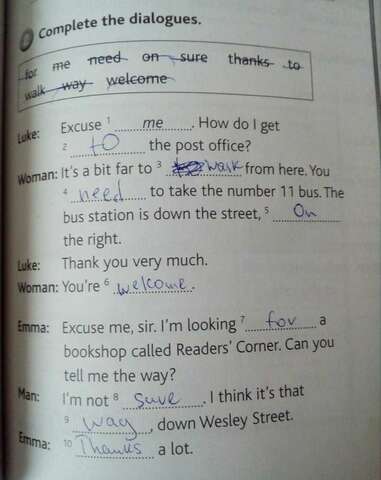 Complete the dialogues.
for me need on sure thanks to
walk way welcome
Luke: Excuse 1 me. How do I get
2 to the post office?
Woman: It's a bit far to 3 walk from here. You
4 need to take the number 11 bus. The
bus station is down the street, 5 On
the right.
Luke: Thank you very much.
Woman: You're 6 welcome.
Emma: Excuse me, sir. I'm looking 7 for a
bookshop called Readers' Corner. Can you
tell me the way?
Man: I'm not 8 sure. I think it's that
9 way, down Wesley Street.
Emma: 10 Thanks a lot.